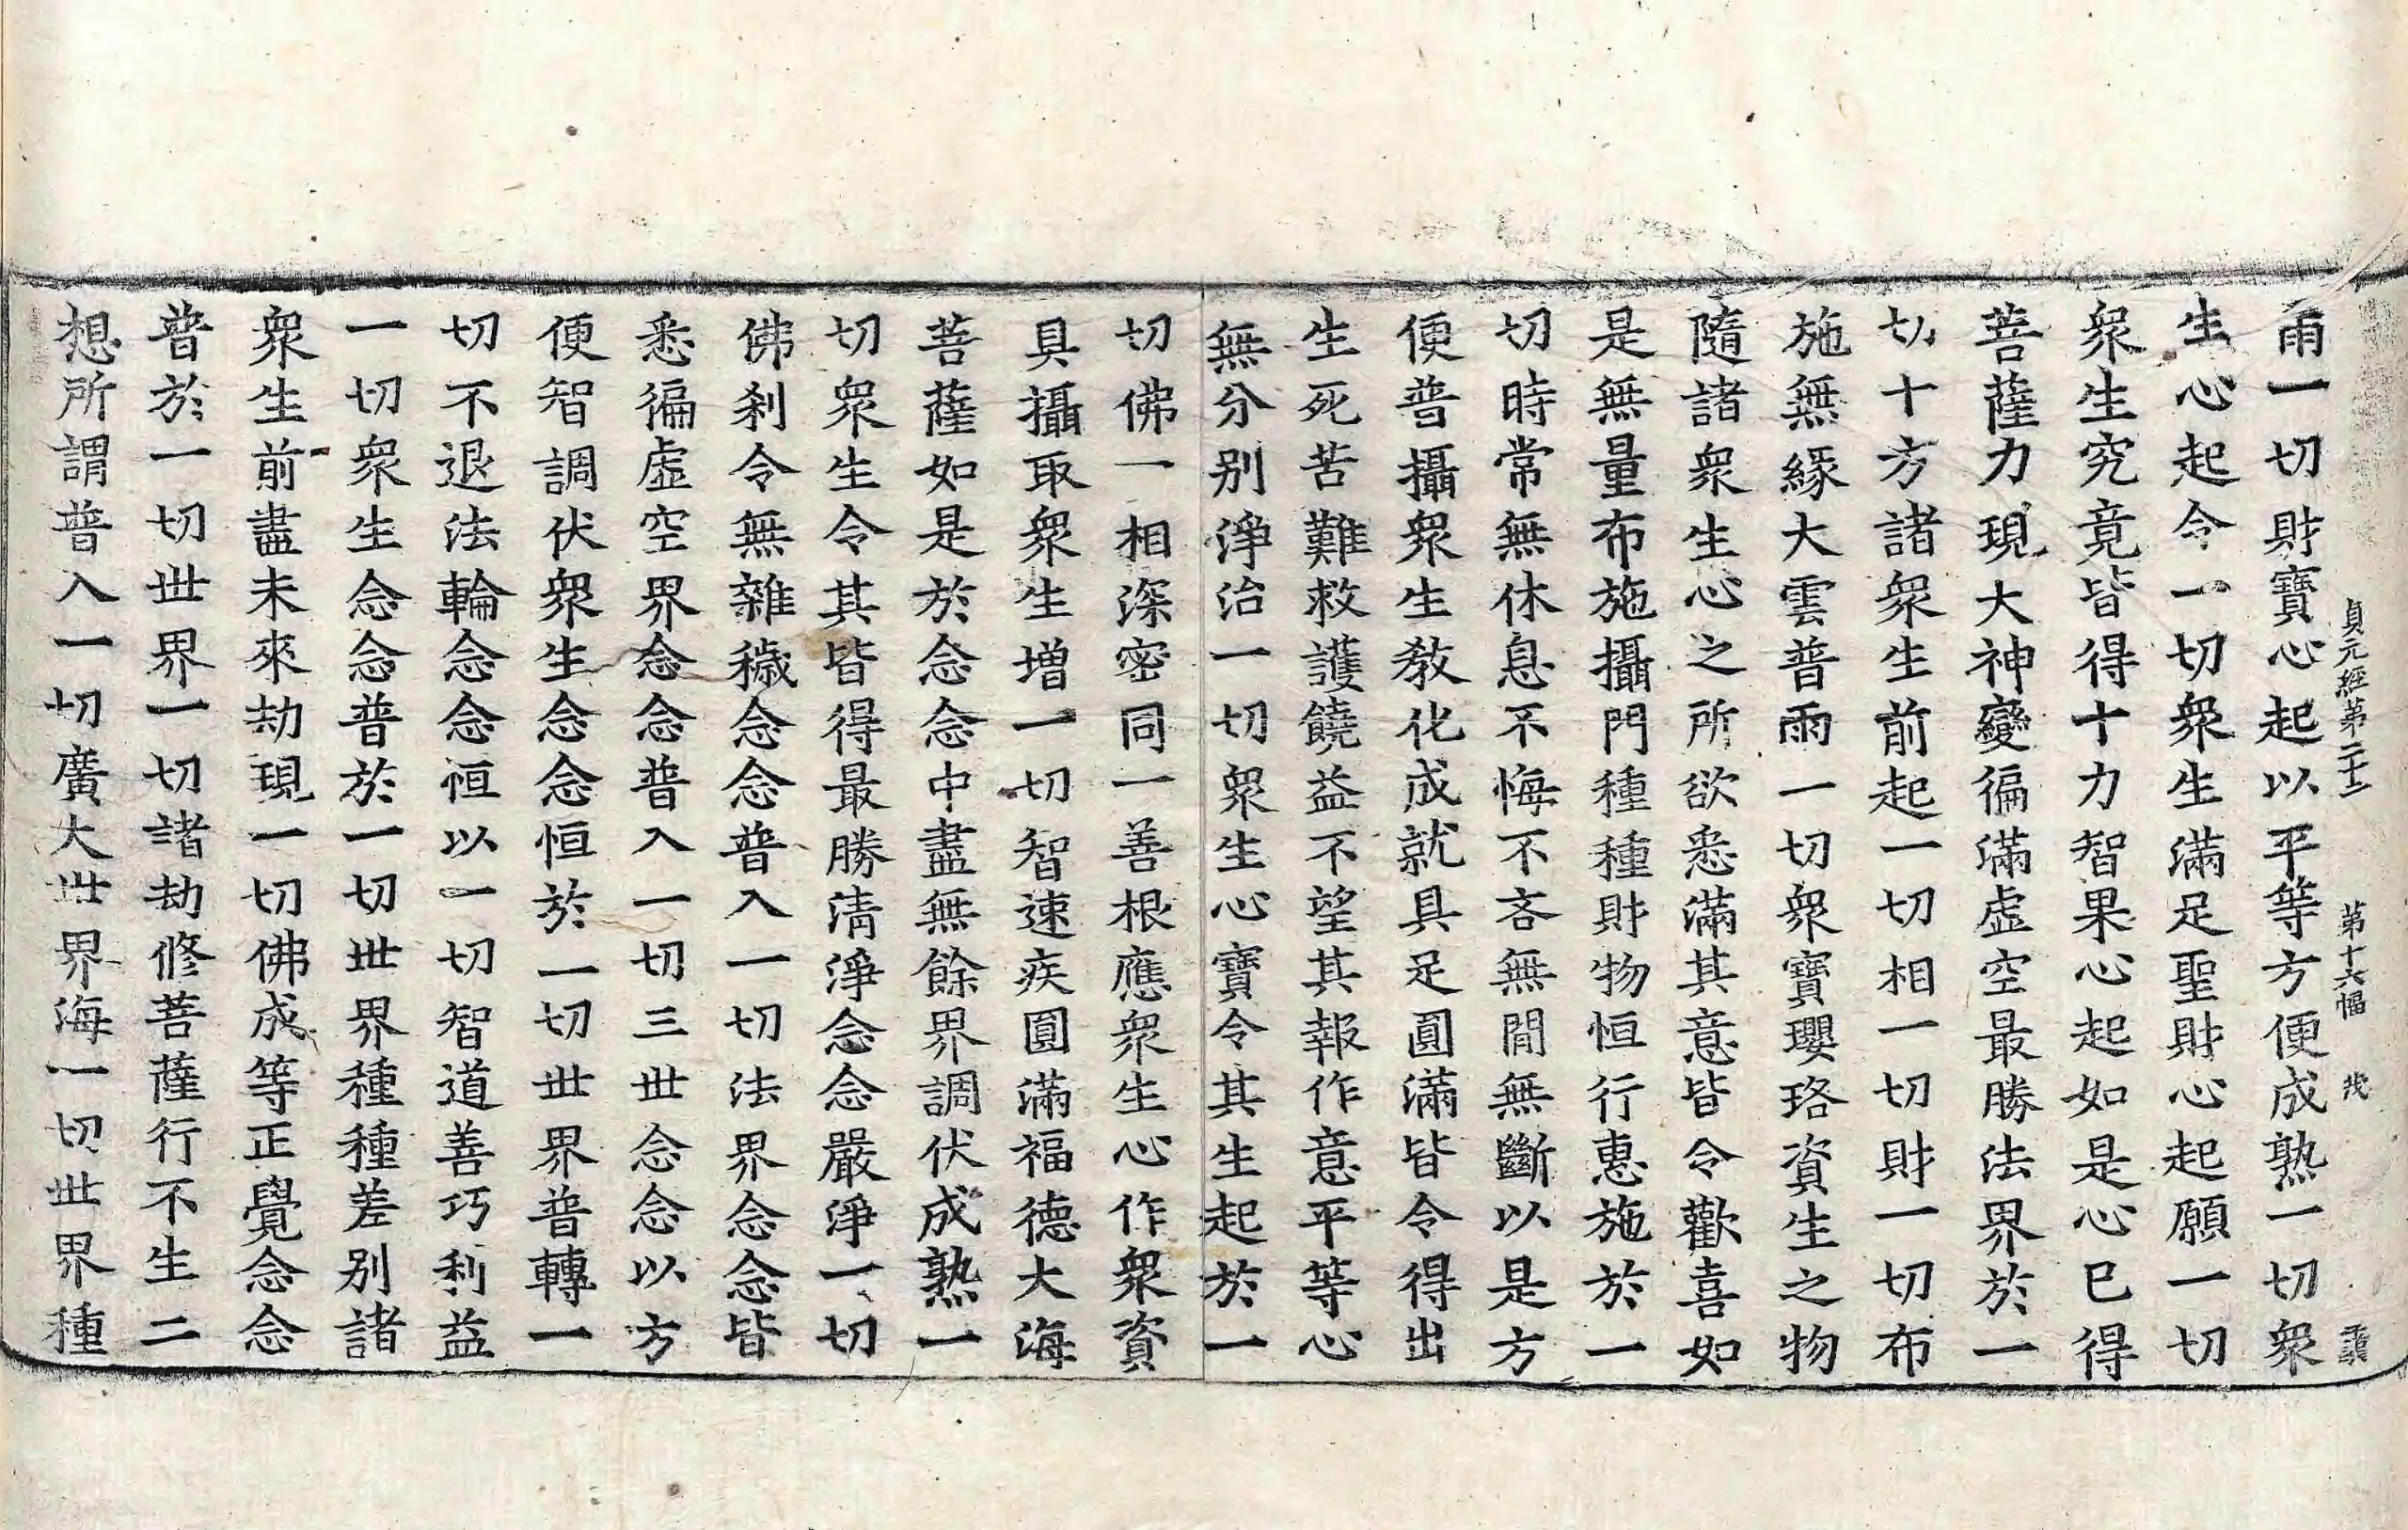 貞元經第二十二 第十六幅
雨一切財寶心起以平等方便成熟一切衆
生心起令一切衆生滿足聖財心起願一切
衆生究竟皆得十力智果心起如是心已得
菩薩力現大神變徧滿虛空最勝法界於一
切十方諸衆生前起一切相一切財一切布
施無緣大雲普雨一切衆寶瓔珞資生之物
隨諸衆生心之所欲悉滿其意皆令歡喜如
是無量布施攝門種種財物恒行惠施於一
切時常無休息不悔不吝無閒無斷以是方
便普攝衆生教化成就具足圓滿皆令得出
生死苦難救護饒益不望其報作意平等心
無分别淨治一切衆生心寶令其生起於一
切佛一相深密同一善根應衆生心作衆資
具攝取衆生增一切智速疾圓滿福德大海
菩薩如是於念念中盡無餘界調伏成熟一
切衆生令其皆得最勝清淨念念嚴淨一切
佛刹令無雜穢念念普入一切法界念念皆
悉徧虛空界念念普入一切三世念念以方
便智調伏衆生念念恒於一切世界普轉一
切不退法輪念念恒以一切智道善巧利益
一切衆生念念普於一切世界種種差别諸
衆生前盡未來劫現一切佛成等正覺念念
普於一切世界一切諸劫修菩薩行不生二
想所謂普入一切廣大世界海一切世界種